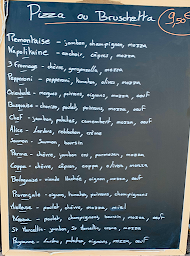 Pizza ou Bruschetta 9,50€
Piemontaise - jambon, champignon, mozza
Napolitaine - anchois, câpres, mozza
3 Fromage - chèvre, gorgonzola, mozza
Pepperoni - pepperoni, mozza, oeuf
Orientale - merguez, poivrons, oignons, mozza, oeuf
poulet, poivrons, mozza, oeuf
Chef - jambon, patates, camembert, mozza, oeuf
Alice - lardons, reblochon, crème
Saumon - Saumon, boursin
Parma - chèvre, jambon cru, parmesan, mozza
Coppa - chèvre, coppa, mozza, olives, mozza
Bolognaise - viande hachée, oignon, mozza, oeuf
Provençale - oignons, poivrons, champignons
poulet, chèvre, mozza, miel
poulet, champignons, boursin, mozza, oeuf
St Marcellin - jambon, St Marcellin, mozza
lardons, patates, oignons, mozza, oeuf